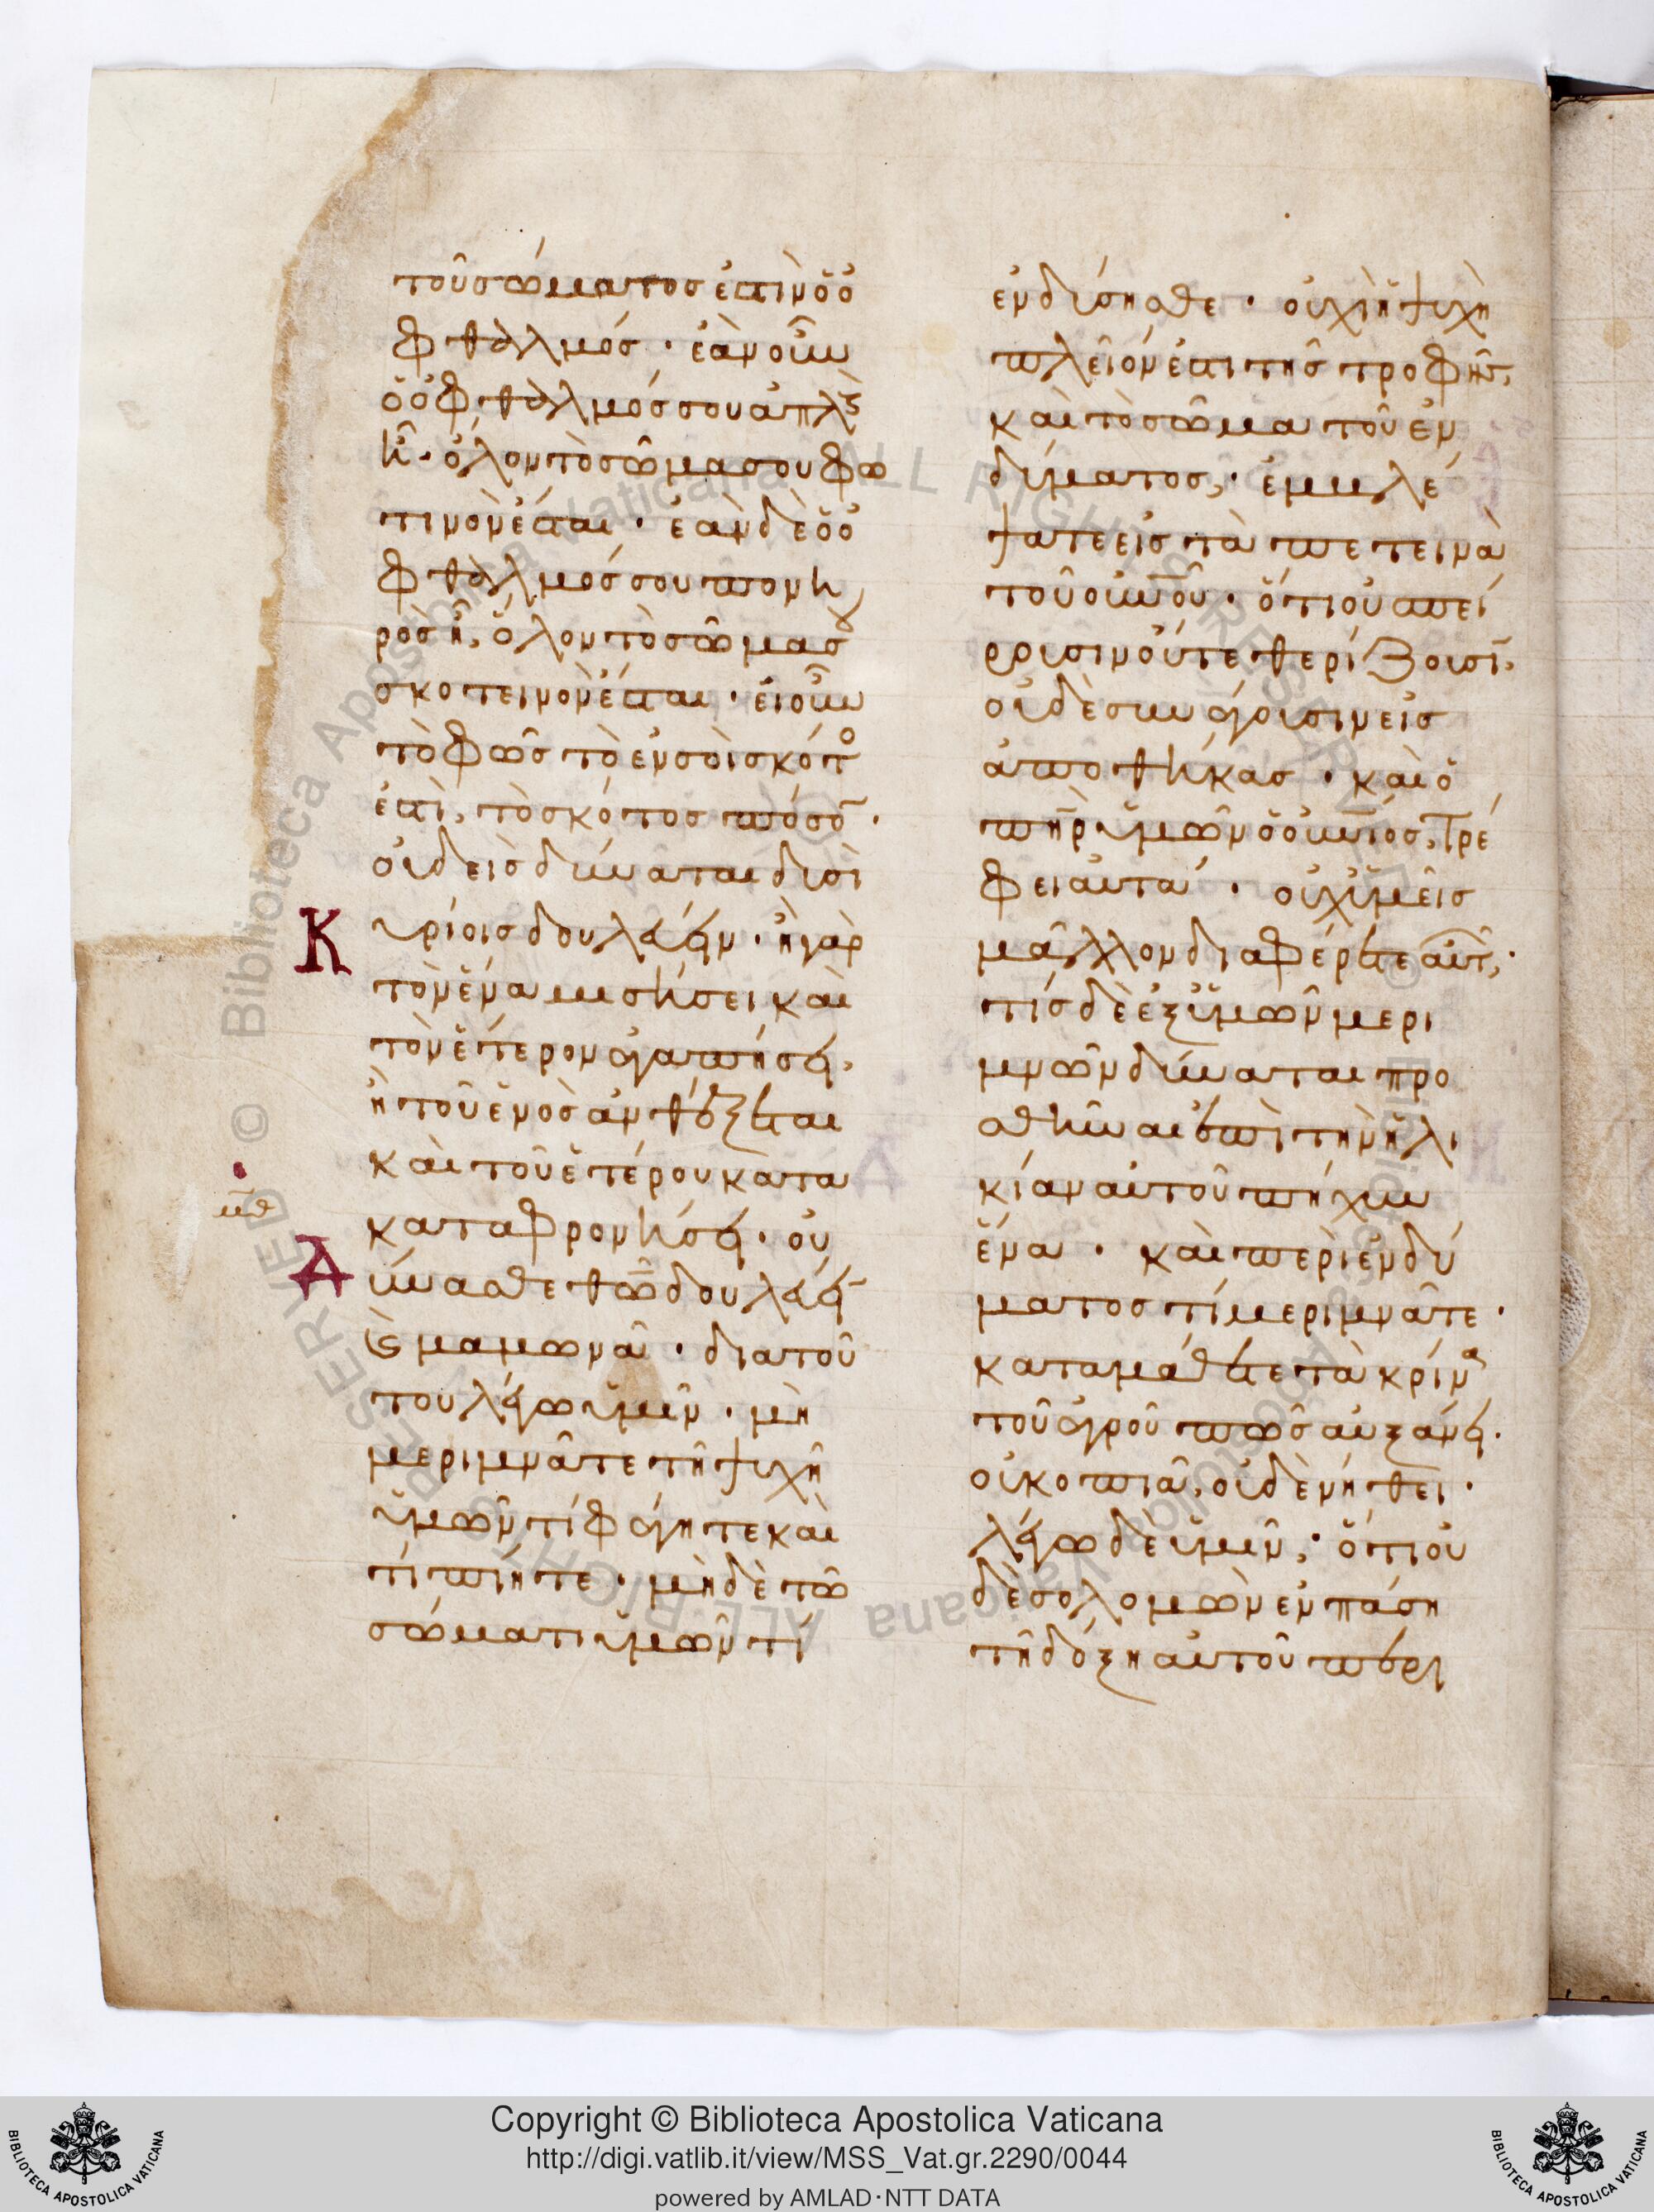 τοῦ σώματος ἐστὶν ὁ ὀ
φθαλμός · ἐὰν οὖν
ὁ ὀφθαλμός σου ἁπλ
ῆ · ὅλον τὸ σῶμα σου φω
τινὸν ἔσται · ἐὰν δὲ ὁ ὀ
φθαλμός σου πονη
ρὸς ἦ, ὅλον τὸ σῶμα σου
σκοτεινὸν ἔσται · εἰ οὖν
τὸ φῶς τὸ ἐν σοὶ σκότο
ἐστὶ, τὸ σκότος πόσο ·
οὐδεὶς δύναται δυσὶ
Κ υρίοις δουλεύειν · ἢ γὰρ
τὸν ἕνα μισήσει καὶ
τὸν ἕτερον ἀγαπήσει,
ἢ τοῦ ἑνὸς ἀνθέξεται
καὶ τοῦ ἑτέρου κατα
καταφρονήσει · οὐ
μθ
Δ ύνασθε θω δουλεύει
καὶ μαμωνᾶ · δια τοῦ
του λέγω ὑμῖν · μὴ
μεριμνᾶτε τῆ ψυχῆ
ὑμῶν τί φάγητε καὶ
τί πίητε · μηδὲ τῶ
σώματι ὑμῶν τί
ἐνδύσησθε · οὐχὶ ἡ ψυχὴ
πλεῖόν ἐστι τῆς τροφῆς,
καὶ τὸ σῶμα τοῦ ἐν
δύματος, · ἐμβλέ
ψατε εἰς τὰ πετεινὰ
τοῦ οὐνοῦ · ὅτι οὐ σπεί
ρουσιν οὔτε θερίζουσι,
οὐδὲ συνάγουσιν εἰς
ἀποθήκας · καὶ ὁ
πηρ ὑμῶν ὁ οὐνιος, τρέ
φει αυτά · οὐχ ὑμεῖς
μᾶλλον διαφέρετε αὐτ, ·
τίς δὲ ἐξ ὑμῶν μερι
μνῶν δύναται προ
σθῆναι ἐπὶ τὴν ἡλι
κίαν αὐτοῦ πῆχυν
ἕνα · καὶ περὶ ἐνδύ
ματος τί μεριμνᾶτε ·
καταμάθετε τὰ κρίνα
τοῦ ἀγροῦ πῶς αὐξάνει ·
οὐ κοπιᾶ, οὐδὲ νήθει ·
λέγω δὲ ὑμῖν, · ὅτι οὐ
δὲ σολομὼν ἐν πάση
τῆ δόξη αὐτοῦ περι
Copyright © Biblioteca Apostolica Vaticana
http://digi.vatlib.it/view/MSS_Vat.gr.2290/0044
powered by AMLAD·NTT DATA